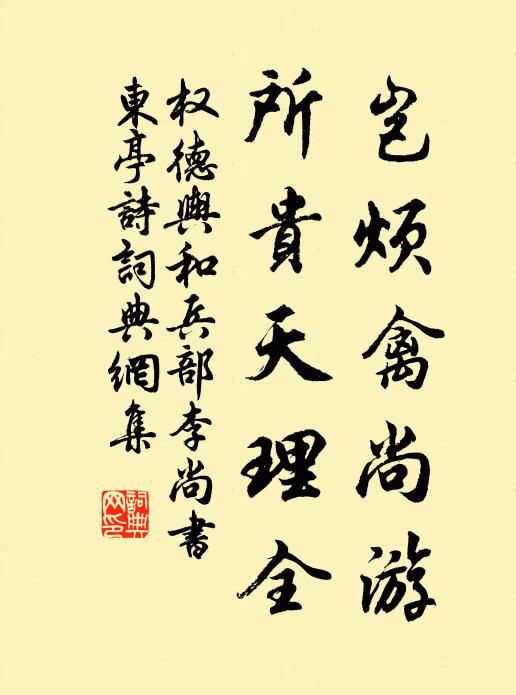 岂烦禽尚游
所貴天理全
权德輿和兵部李尚書
東亭詩詞典網集
詞典
网印